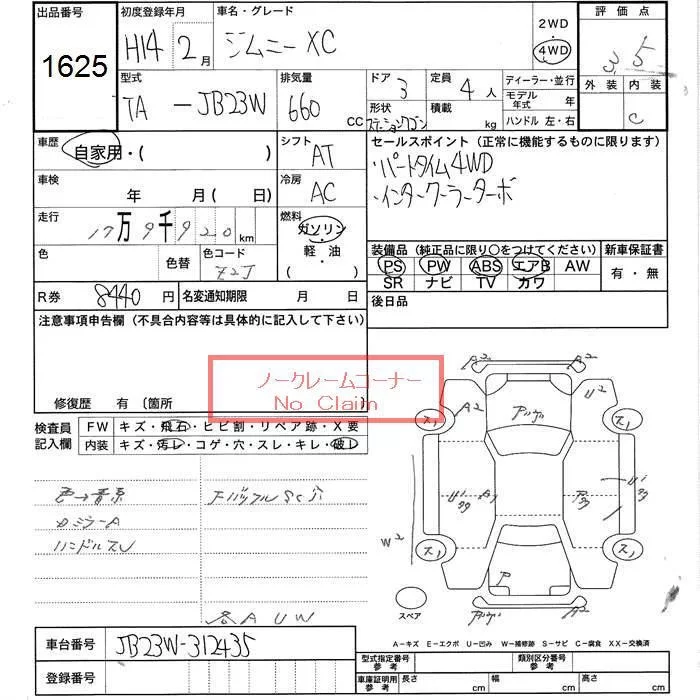 出品番号 初度登録年月 車名・グレード 2WD 評価点
1625 H14 2月 ジムニー XC 4WD 3.5
型式 排気量 ドア 3 定員 4人 ディーラー・並行 外装 内装
TA-JB23W 660 CC 形状 ステーションワゴン 積載 kg モデル年式 年 C
ハンドル 左・右
車歴 自家用・( ) シフト AT セールスポイント(正常に機能するものに限ります)
・パートタイム4WD
車検 年 月( 日) 冷房 AC ・インタークーラーターボ
走行 17万9千920km 燃料 ガソリン
軽・油
( )
色 色替 色コード Z2J 装備品(純正品に限り○をつけてください) 新車保証書
PS PW ABS エアB AW 有・無
SR ナビ TV カワ
R券 8440円 名変通知期限 月 日 後日品
注意事項申告欄(不具合内容等は具体的に記入して下さい)
ノークレームコーナー
No Claim
修復歴 有 〔箇所 〕
検査員記入欄 FW キズ・飛石・ヒビ割・リペア跡・X要
内装 キズ・汚レ・コゲ・穴・スレ・キレ・破レ
カミラーA
ハンドルスレ
各AUW
A2 A2
A2 U2
ス1 ス1
W2
ス1 ス1
ア
スペア
A-キズ E-エクボ U-凹み W-補修跡 S-サビ C-腐食 XX-交換済
車台番号 JB23W-312435
登録番号
型式指定番号 参考 類別区分番号 参考
車庫証明用 参考 長さ cm 幅 cm 高さ cm